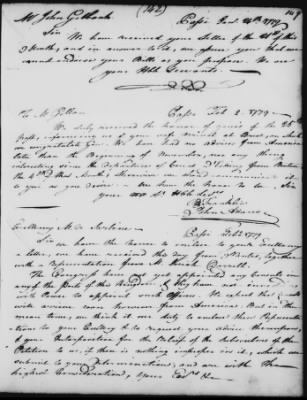 Mr John Gilbank (142)
Passi Feb 2d 1779
Sir
We have received your Letter of the of this
Month, and in answer to it, we assure you that we
cannot advance your Bills as you propose. We are
your Hble Servants.
To M. Passi Feb 2 1779
We duly received the honour of yours of the 26th
past, informing us of your safe arrival at on which
we congratulate you. We have had no advices from America
later than the Beginning of November, nor any thing
interesting since the of Count D'Estaing from Boston
the 4th of that Month. Whenever we shall communicate it
to you as you desire. We have the honor to be, Sir
your Hble Servts
B Franklin
John Adams
To Excellency M. de Sartine Passi Feb 1779
Sir We have the honour to enclose to your Excellency
a letter, we have received this Day from Nantes, together
with a representation from
The Congress have not yet appointed any Consuls in
any of the Ports of this Kingdom & they have not
to appoint such Officers. We expect
with advice and from America: But in the
mean time, we think it our duty to enclose these Representa-
tions to your Excellency & to request your advice thereupon &
your Interposition for the Relief of the Subscribers of the
Petition to us, if there is nothing improper in it, which we
submit to your Determination; and are with the
highest Consideration, your